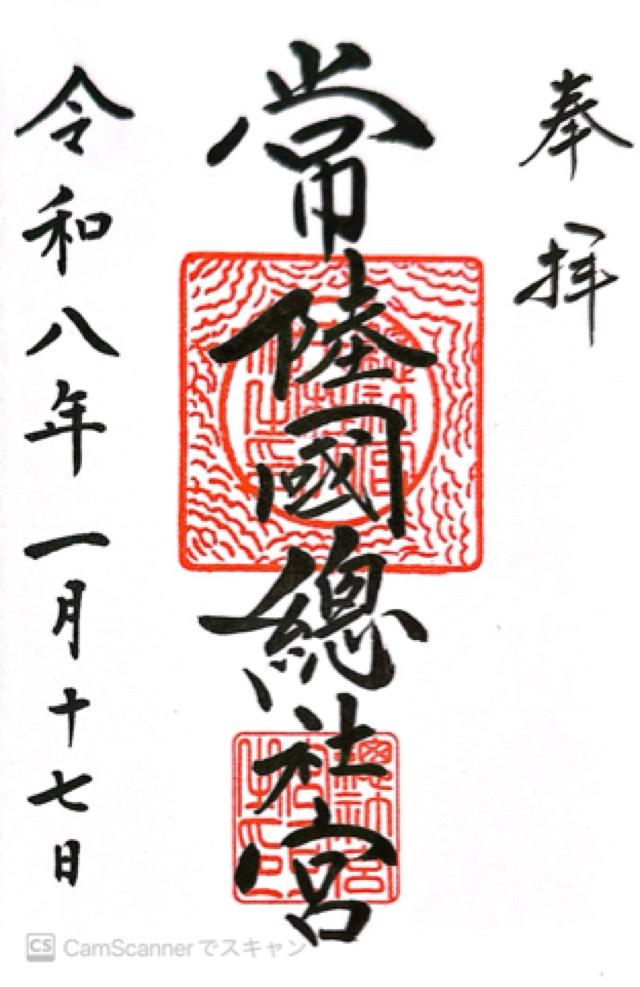 奉拝
常陸國總社宮
令和八年一月十七日
CS CamScannerでスキャン